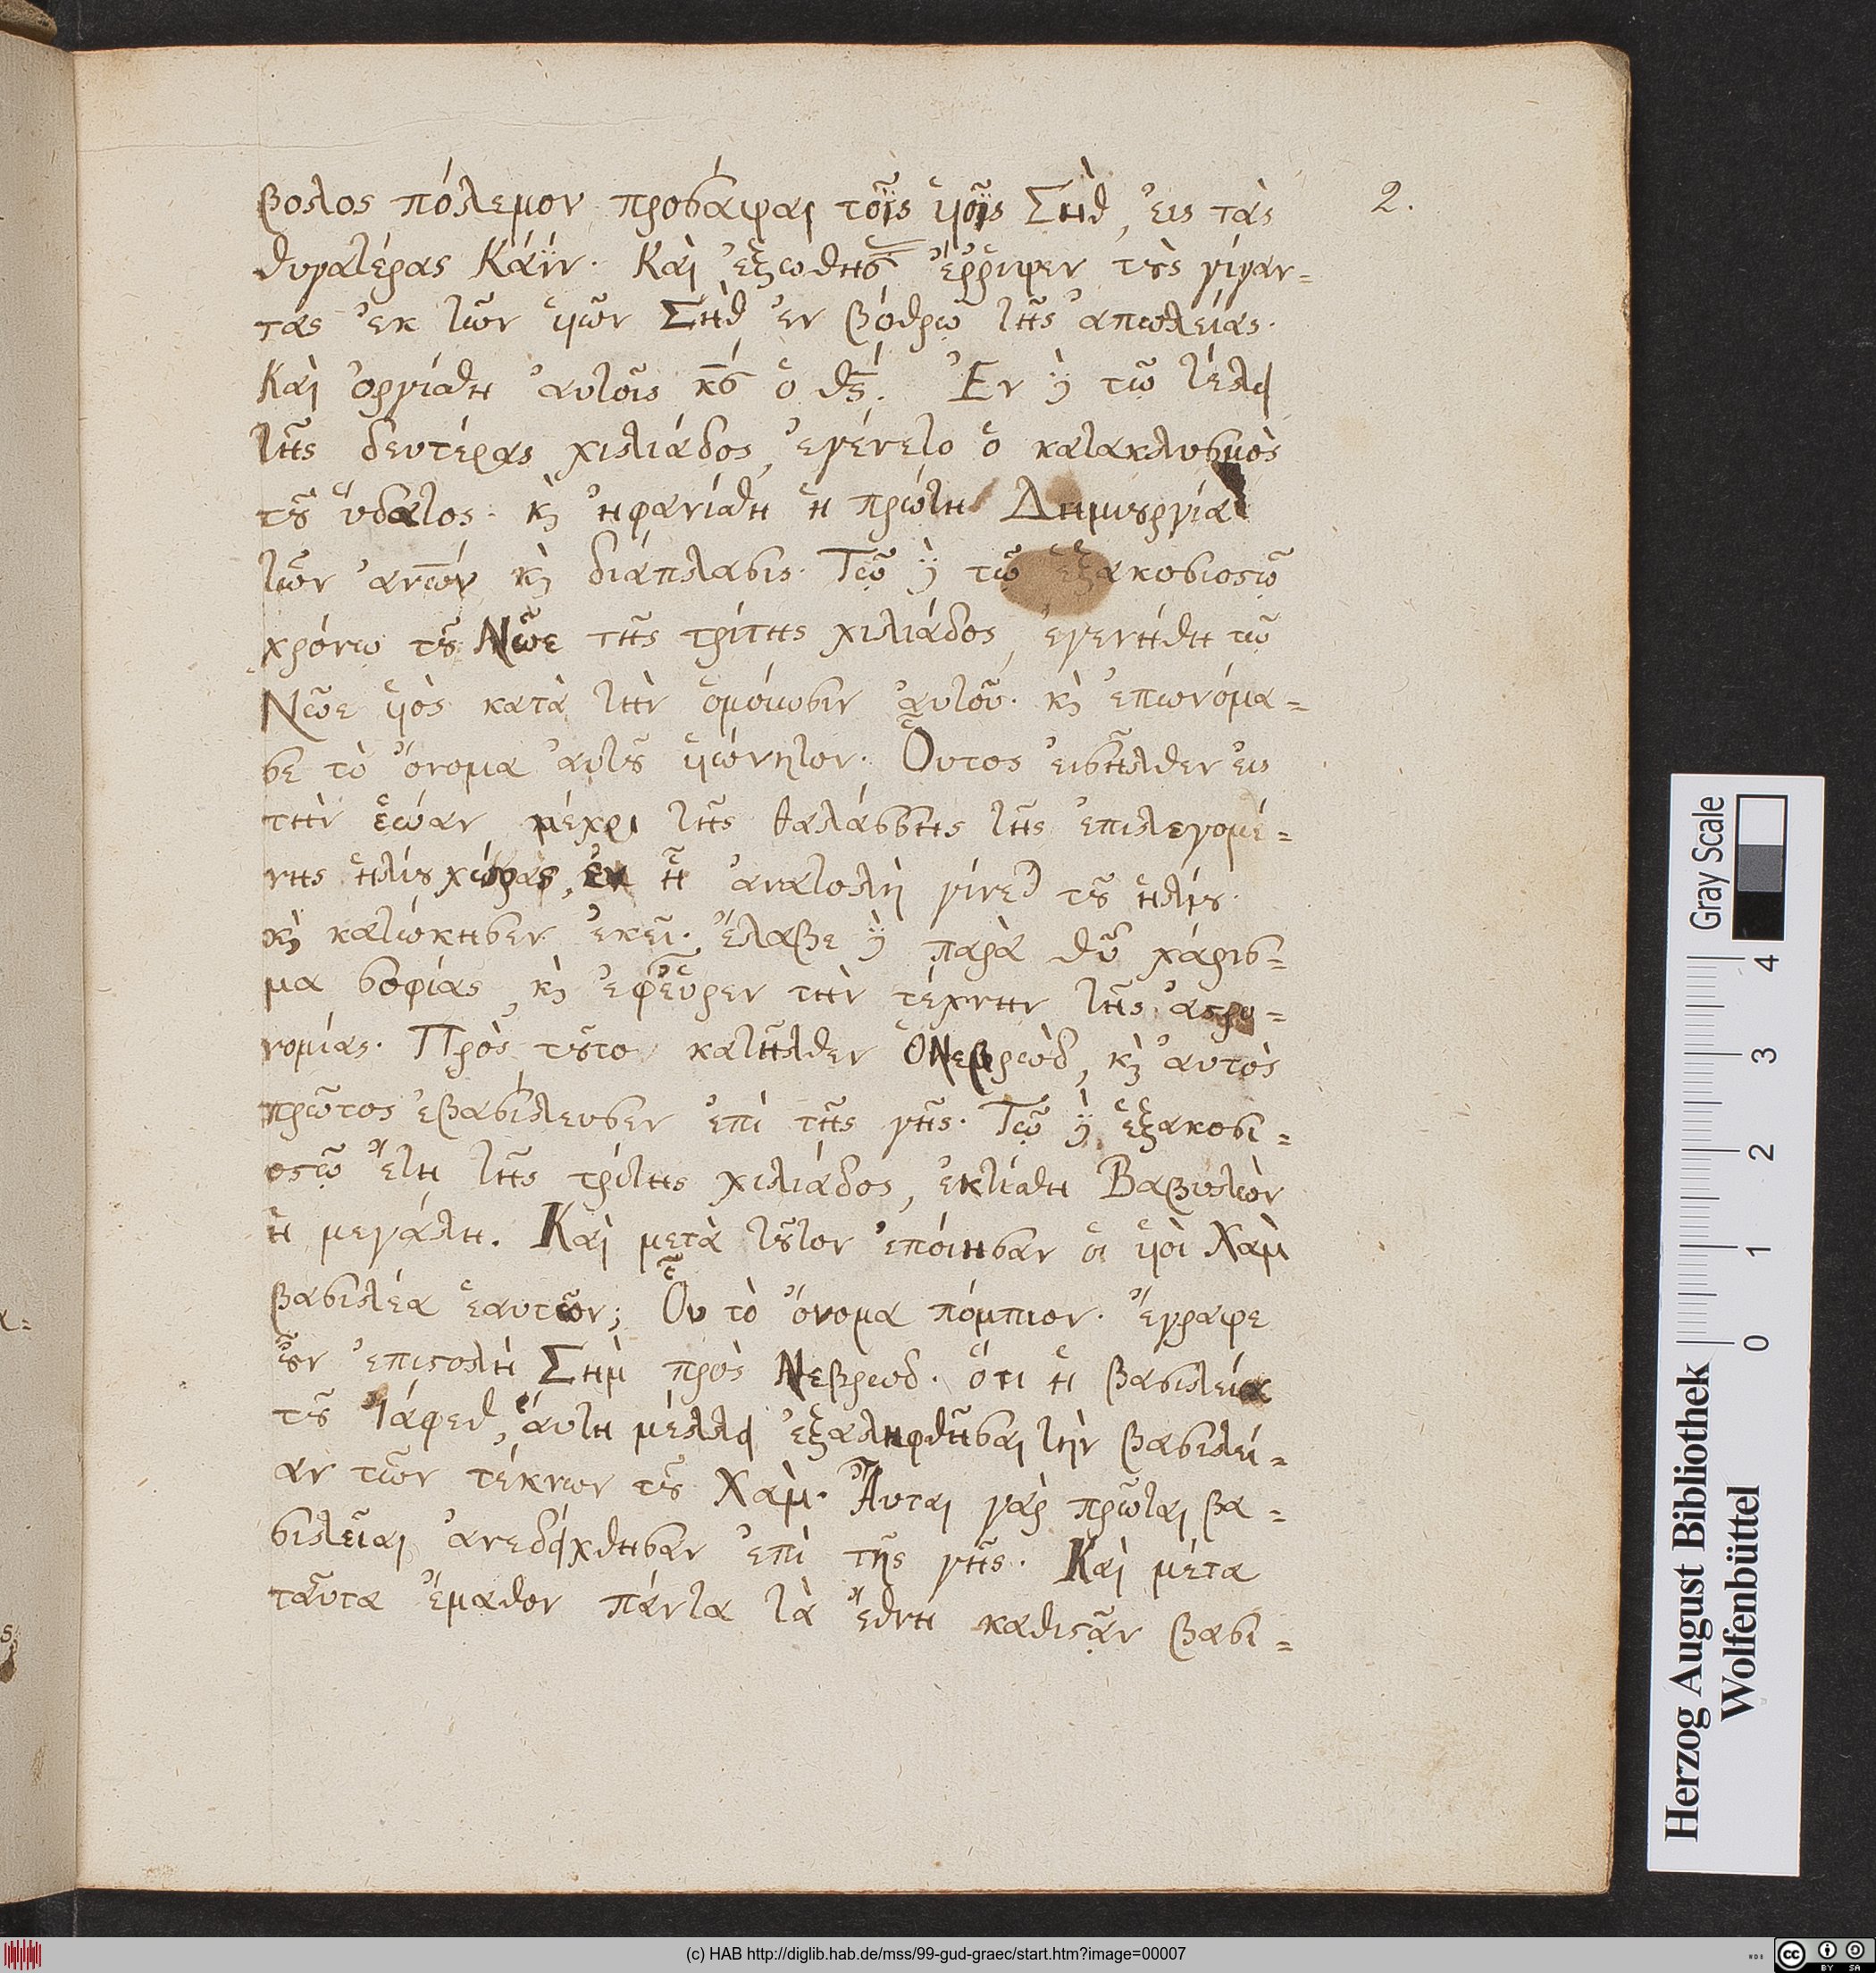 βολος πόλεμον προσάψαι τοῖς ὑιοῖς Σὴθ, εἰς τὰς
2.
θυγατέρας Κάϊν. Καὶ ἐξωθησ ἔῤῥιψεν τοὺς γίγαν=
τάς ἐκ τῶν ὑιῶν Σὴθ ἐν βόθρῳ τῆς ἀπωλείας.
Καὶ ὀργίσθη ἀυτοῖς κς ὁ θς. Ἐν δὲ τῷ τέλει
τῆς δευτέρας χιλιάδος, ἐγένετο ὁ κατακλυσμὸς
τοῦ ὕδατος. κὶ ἠφανίσθη ἡ πρώτη Δημιουργία
τῶν ἀνων κὶ διάπλασις. Τῷ δὲ τῷ ἑξακοσιοστῷ
χρόνῳ τοῦ Νῶε τῆς τρίτης χιλιάδος, ἐγενήθη τῷ
Νῶε ὑιὸς κατὰ τὴν ὁμόιωσιν ἀυτοῦ. κὶ ἐπωνόμα=
σε τὸ ὄνομα ἀυτοῦ ὑιώνητον. Οὗτος εἰσῆλθεν εἰς
τὴν ἑώαν μέχρι τῆς θαλάσσης τῆς ἐπιλεγομέ=
νης ἡλίου χώρας, ἐν ᾗ ἀνατολὴ γίνετ τοῦ ἡλίου.
κὶ κατώκησεν ἐκεῖ. Ἔλαβε δὲ παρὰ θυ χάρισ=
μα σοφίας, κὶ ἐφεῦρεν τὴν τέχνην τῆς ἀστρο=
νομίας. Πρὸς τοῦτο κατῆλθεν ὁ Νεβρὼδ, κὶ ἀυτὸς
πρῶτος ἐβασίλευσεν ἐπὶ τῆς γῆς. Τῷ δὲ ἑξακοσι=
οστῷ ἔτη τῆς τρίτης χιλιάδος, ἐκτίσθη Βαβυλὼν
ἡ μεγάλη. Καὶ μετὰ τοῦτον ἐπόιησαν ὁι ὑιὸι Χὰμ
βασιλέα ἑαυτῶν; Οὗ τὸ ὄνομα πόμπιον. Ἔγραψε
οὖν ἐπιστολὴ Σὴμ πρὸς Νεβρωδ. ὅτι ἡ βασιλεία
τοῦ Ἰάφεθ, ἅυτη μέλλει ἐξαληφθῆσαι τὴν βασιλεί=
αν τῶν τέκνων τοῦ Χὰμ. Ἆυται γὰρ πρῶται βα=
σιλεῖαι ἀνεδείχθησαν ἐπὶ τῆς γῆς. Καὶ μέτα
ταῦτα ἔμαθον πάντα τὰ ἔθνη καθιστᾷν βασι=
Gray Scale
0 1 2 3 4
Herzog August Bibliothek
Wolfenbüttel
(c) HAB http://diglib.hab.de/mss/99-gud-graec/start.htm?image=00007